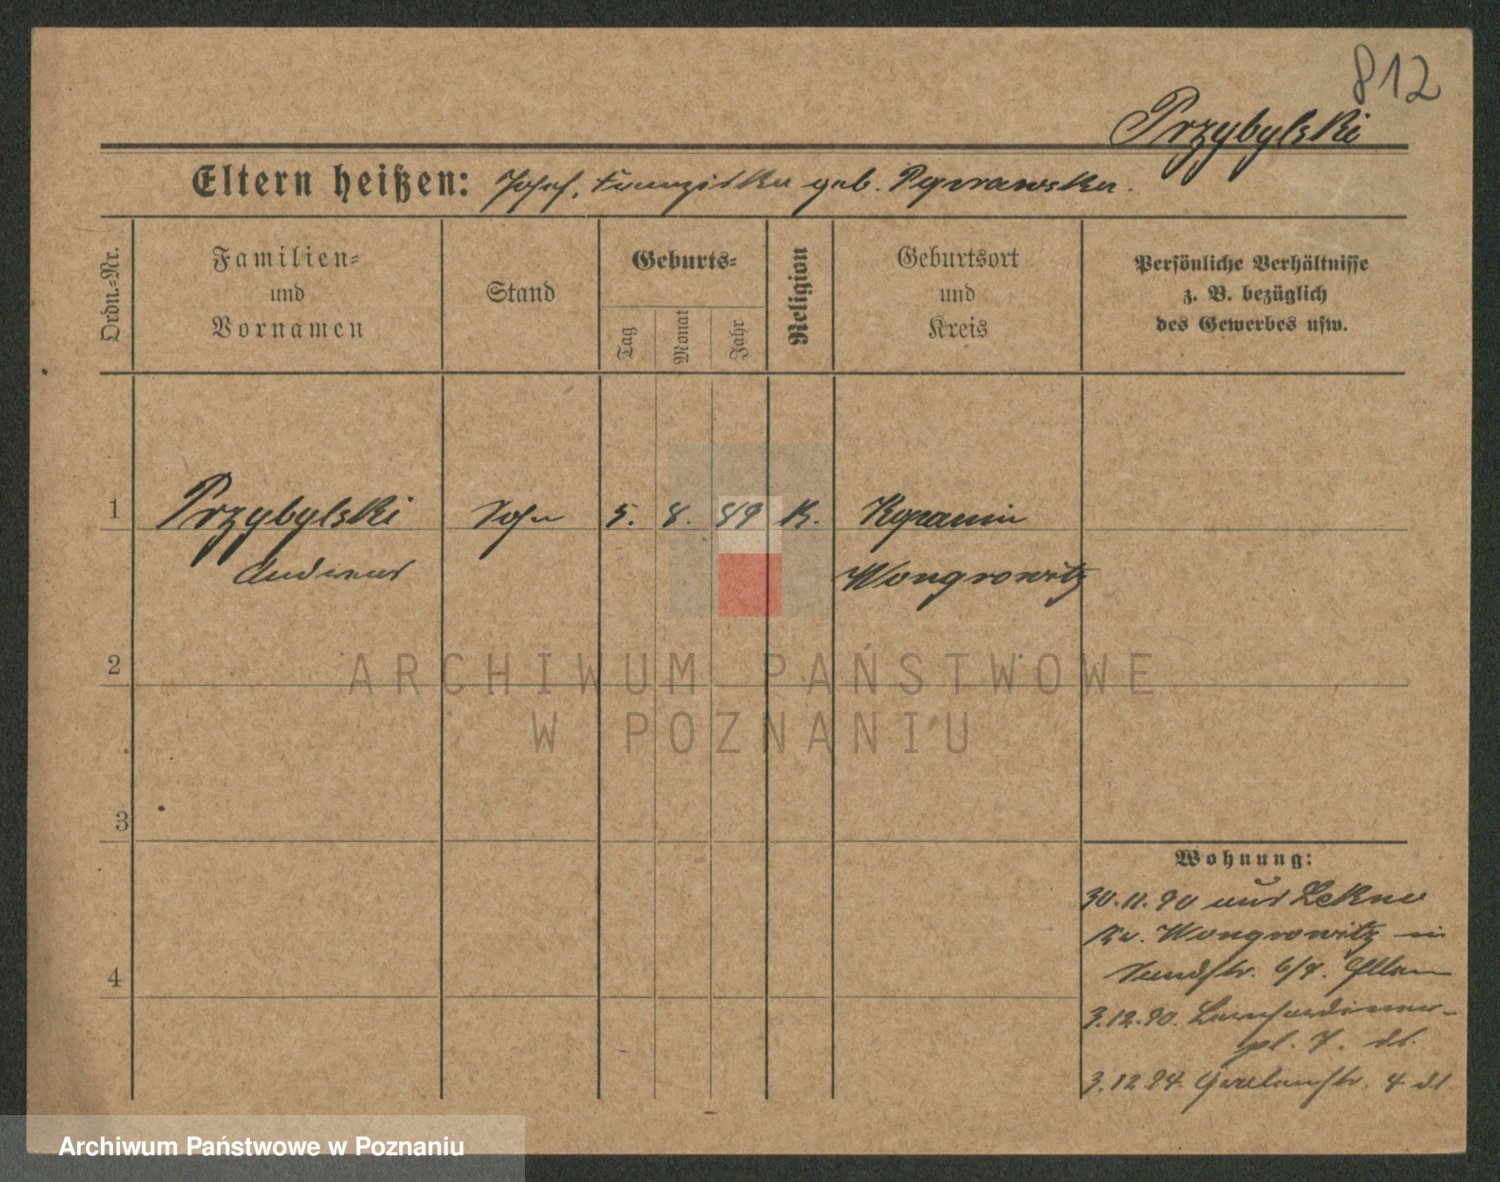 812
Przybylski
Eltern heißen: Josef, Franziska geb.
Ordn.-Nr.
Familien-
und
Vornamen
Stand
Geburts-
Tag
Monat
Jahr
Religion
Geburtsort
und
Kreis
Persönliche Verhältnisse
z. B. bezüglich
des Gewerbes usw.
1 Przybylski Sohn 5. 8. 89 K.
Andreas Wongrowitz
2
ARCHIWUM PAŃSTWOWE
W POZNANIU
3
Wohnung:
30.11.90 aus Lekno
Kr. Wongrowitz in
6/7.
3.12.90. Bernhardiner-
pl. 7. dl.
3.12.94. 4 dl
4
Archiwum Państwowe w Poznaniu